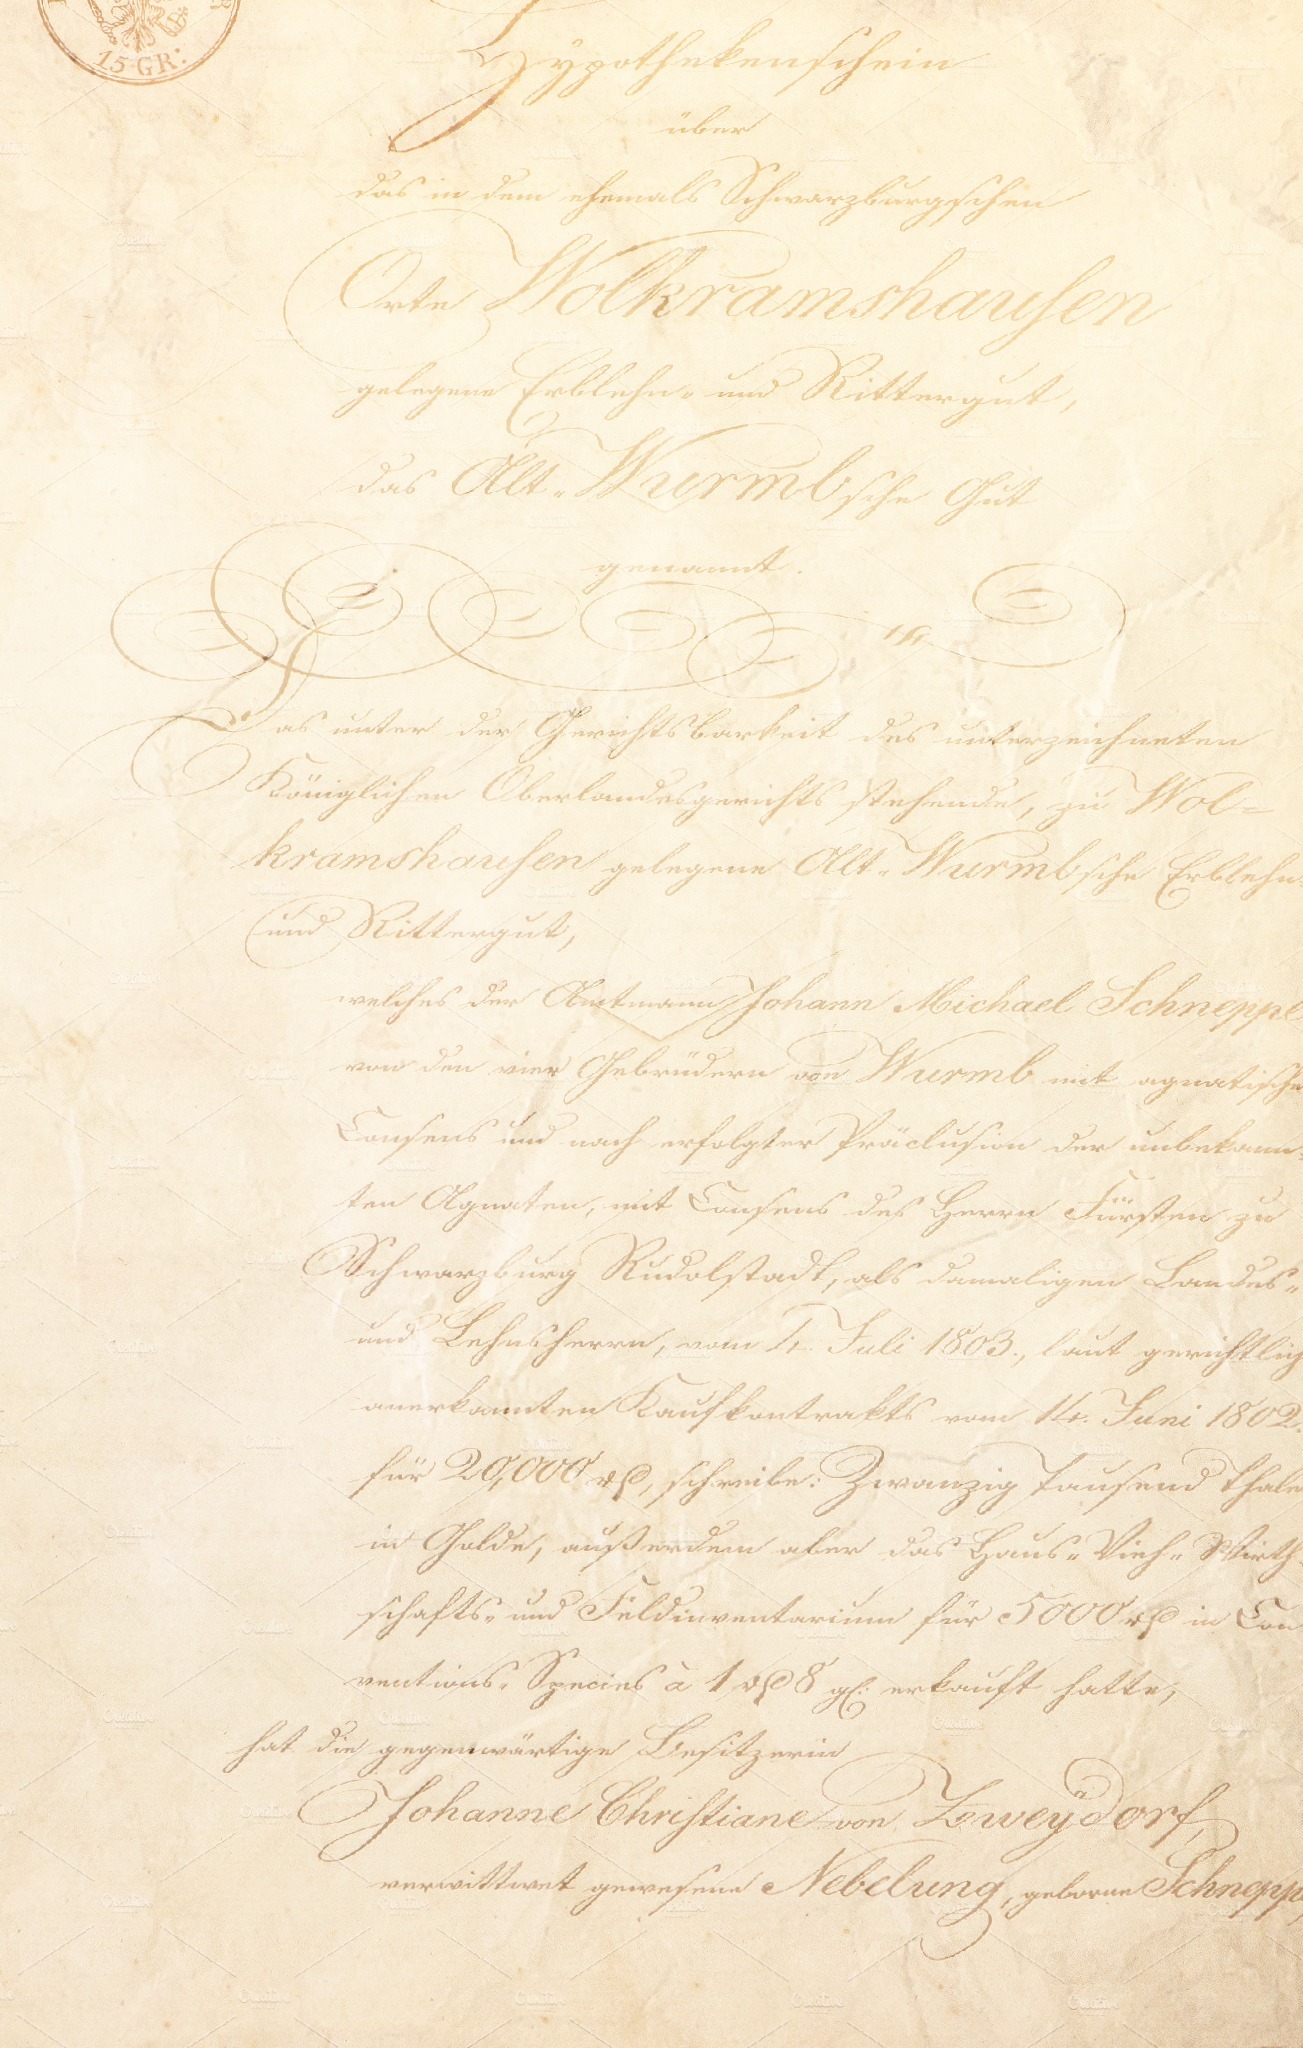 15 GR:
Hypothekenschein
über
das in dem ehemals Schwarzburgschen
Orte Wolkramshausen
gelegene Erblehn- und Rittergut,
das Alt-Wurmbsche Gut
genannt.
Das unter der Gerichtsbarkeit des unterzeichneten
Königlichen Oberlandesgerichts stehende, zu Wol=
kramshausen gelegene Alt-Wurmbsche Erblehn-
und Rittergut,
welches der Amtmann Johann Michael Schneppe
von den vier Gebrüdern von Wurmb mit agnatische
Consens und nach erfolgter Präclusion der unbekann-
ten Agnaten, mit Consens des Herrn Fürsten zu
Schwarzburg Rudolstadt, als damaligen Landes-
und Lehnsherrn, vom Juli 1803., laut gerichtlich
anerkannten Kaufkontrakts vom 14. Juni 1802.
für 20,000 rß, schreibe: Zwanzig Tausend Thale
in Golde, außerdem aber das Haus- Vieh- Wirth-
schafts- und Feldinventarium für 5000 rß in Con
ventions- Species à 1 rß 8 gl. erkauft hatte,
hat die gegenwärtige Besitzerin
Johanne Christiane von Zweydorf,
verwittwet gewesene Nebelung, geborne Schnepp